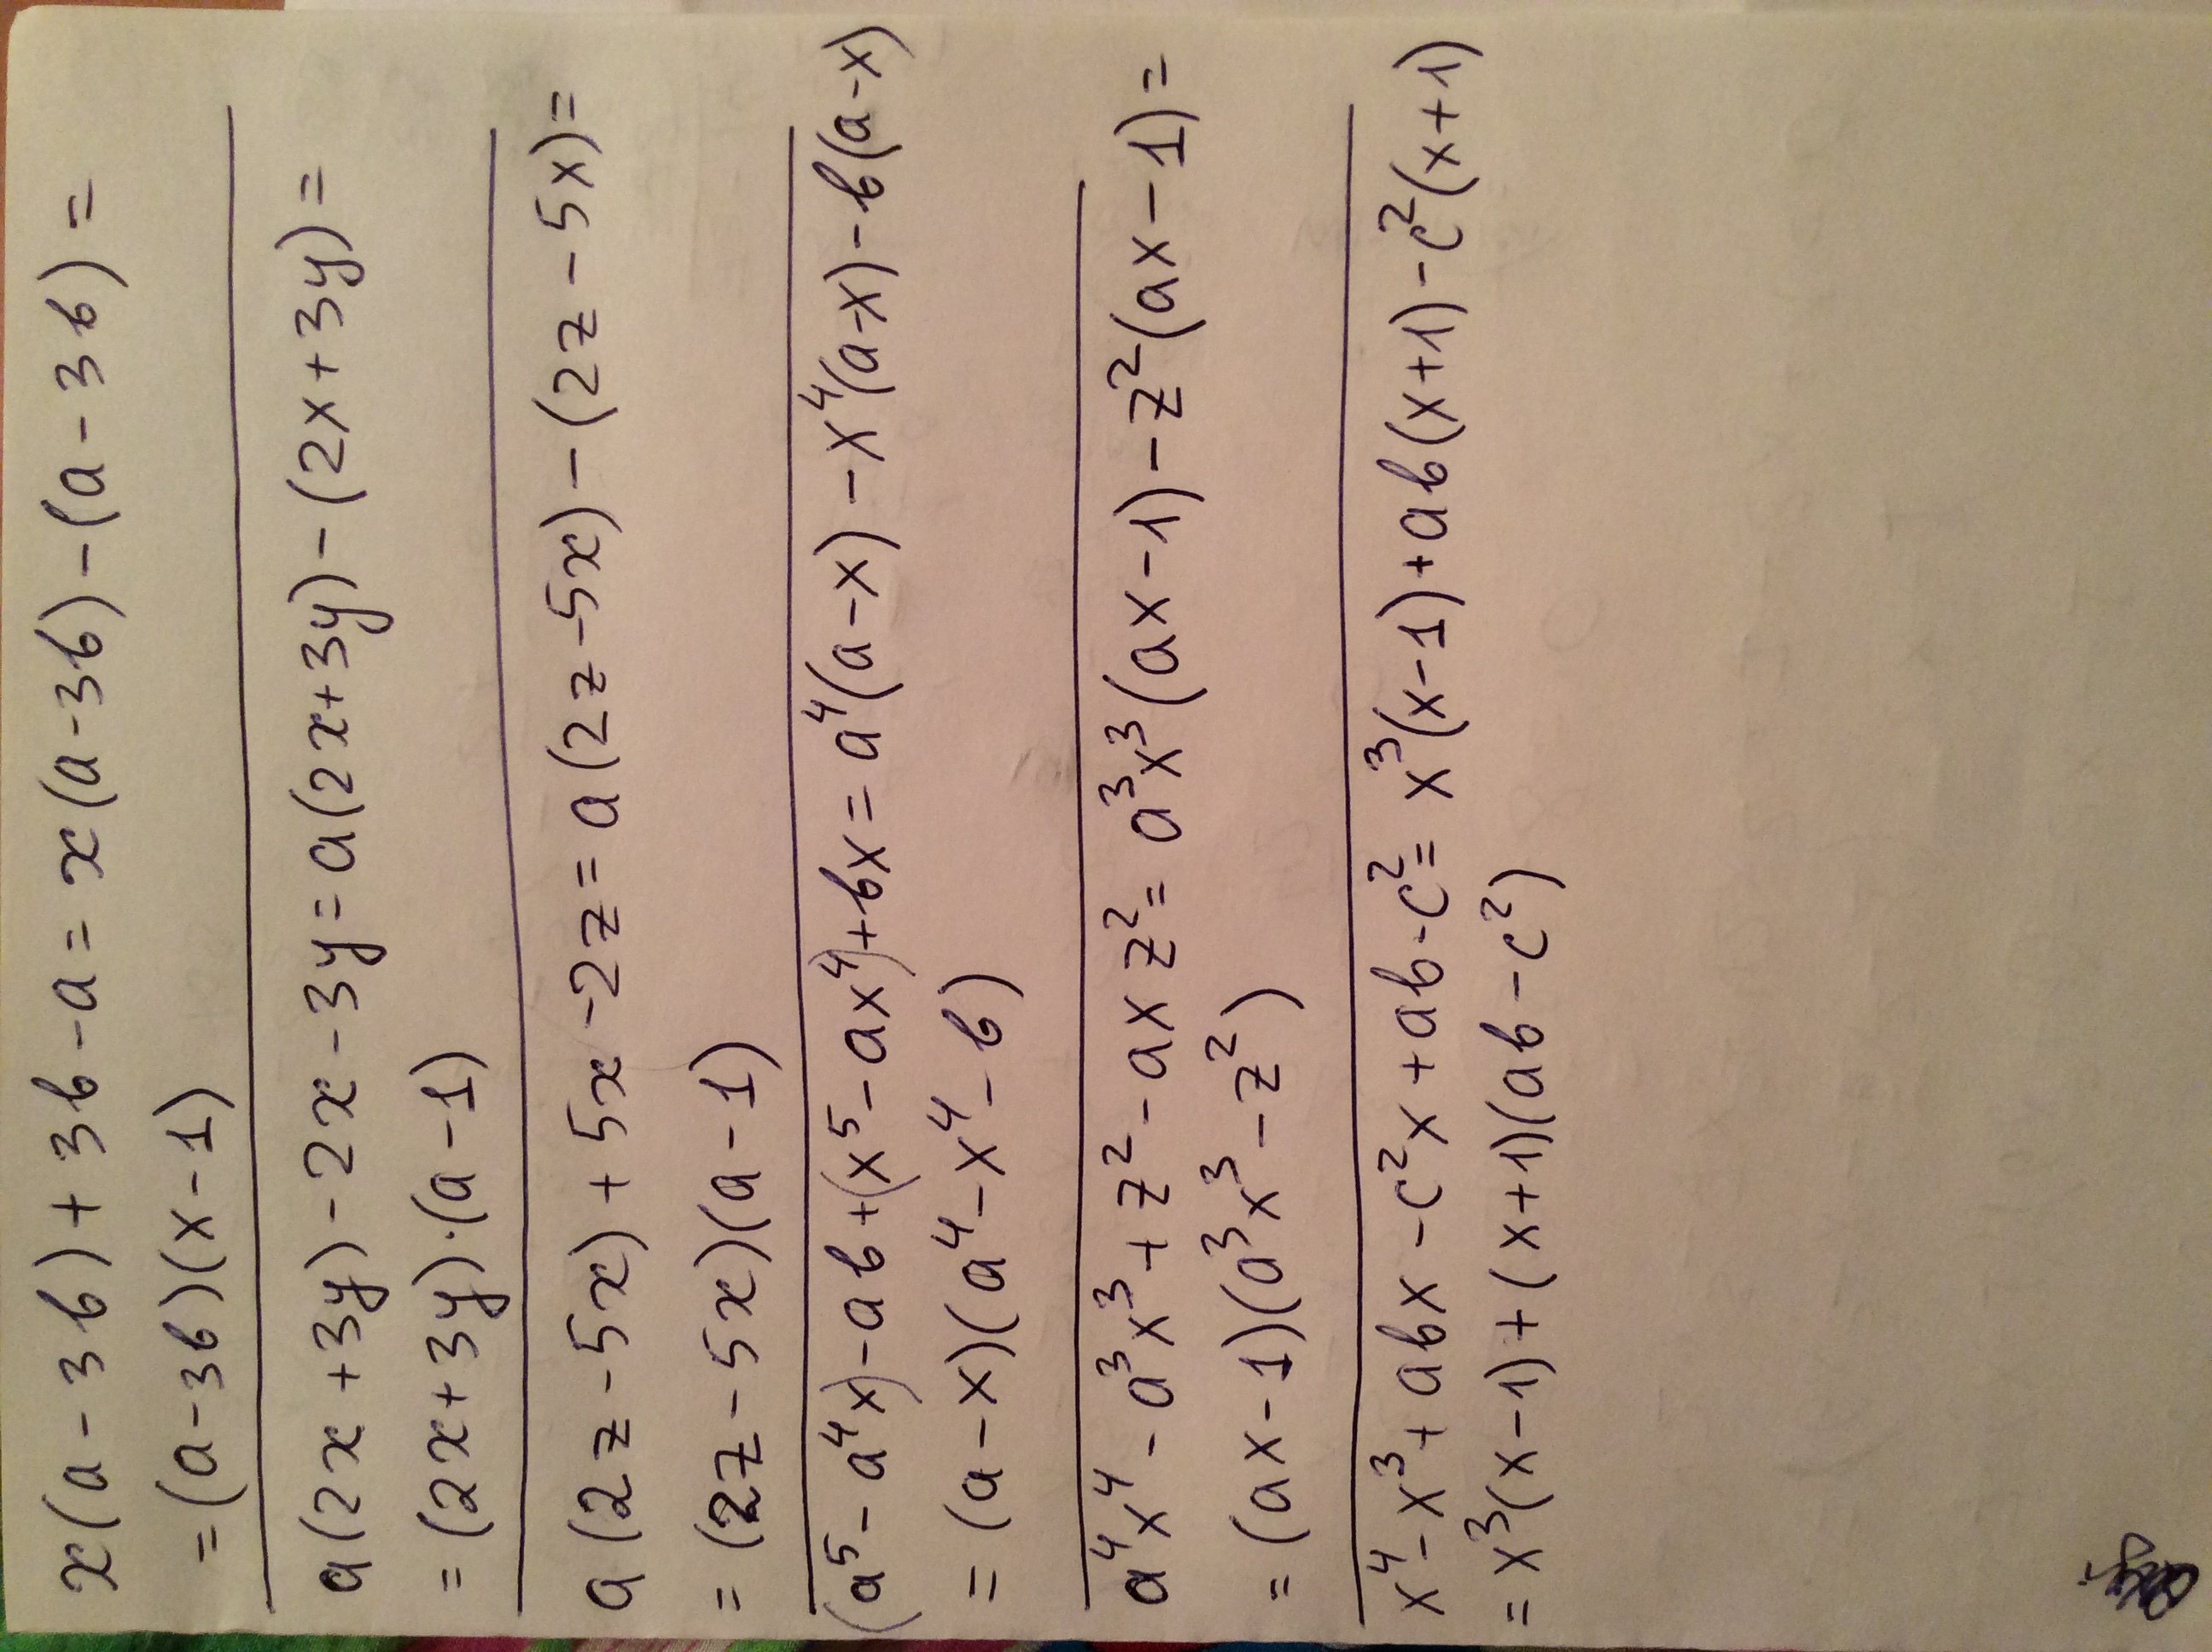 x(a-3b)+3b-a=x(a-3b)-(a-3b)=
=(a-3b)(x-1)
a(2x+3y)-2x-3y=a(2x+3y)-(2x+3y)=
=(2x+3y)·(a-1)
a(2z-5x)+5x-2z=a(2z-5x)-(2z-5x)=
=(2z-5x)(a-1)
(a⁵-a⁴x)-ab+(x⁵-ax⁴)+bx=a⁴(a-x)-x⁴(a-x)-b(a-x)
=(a-x)(a⁴-x⁴-b)
a⁴x⁴-a³x³+z²-axz²=a³x³(ax-1)-z²(ax-1)=
=(ax-1)(a³x³-z²)
x⁴-x³+abx-c²x+ab-c²=x³(x-1)+ab(x+1)-c²(x+1)
=x³(x-1)+(x+1)(ab-c²)